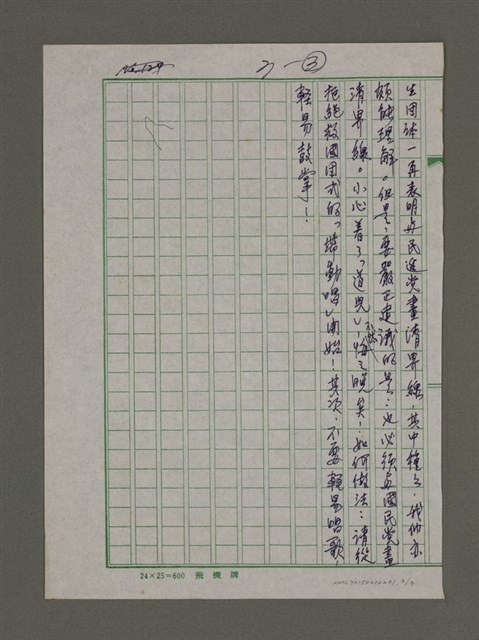 ㄋ—③
生团体一再表明与民進党畫清界線，其中種々，我們亦
頗能理解。但是，要嚴正建議的是：也必須与國民党畫
清界線。小心着了「道兒」！不然悔之晚矣！如何做法：請從
拒絕救國团式的「帶動唱」開始！其次，不要輕易唱歌！
輕易鼓掌！
24×25=600 飛機牌